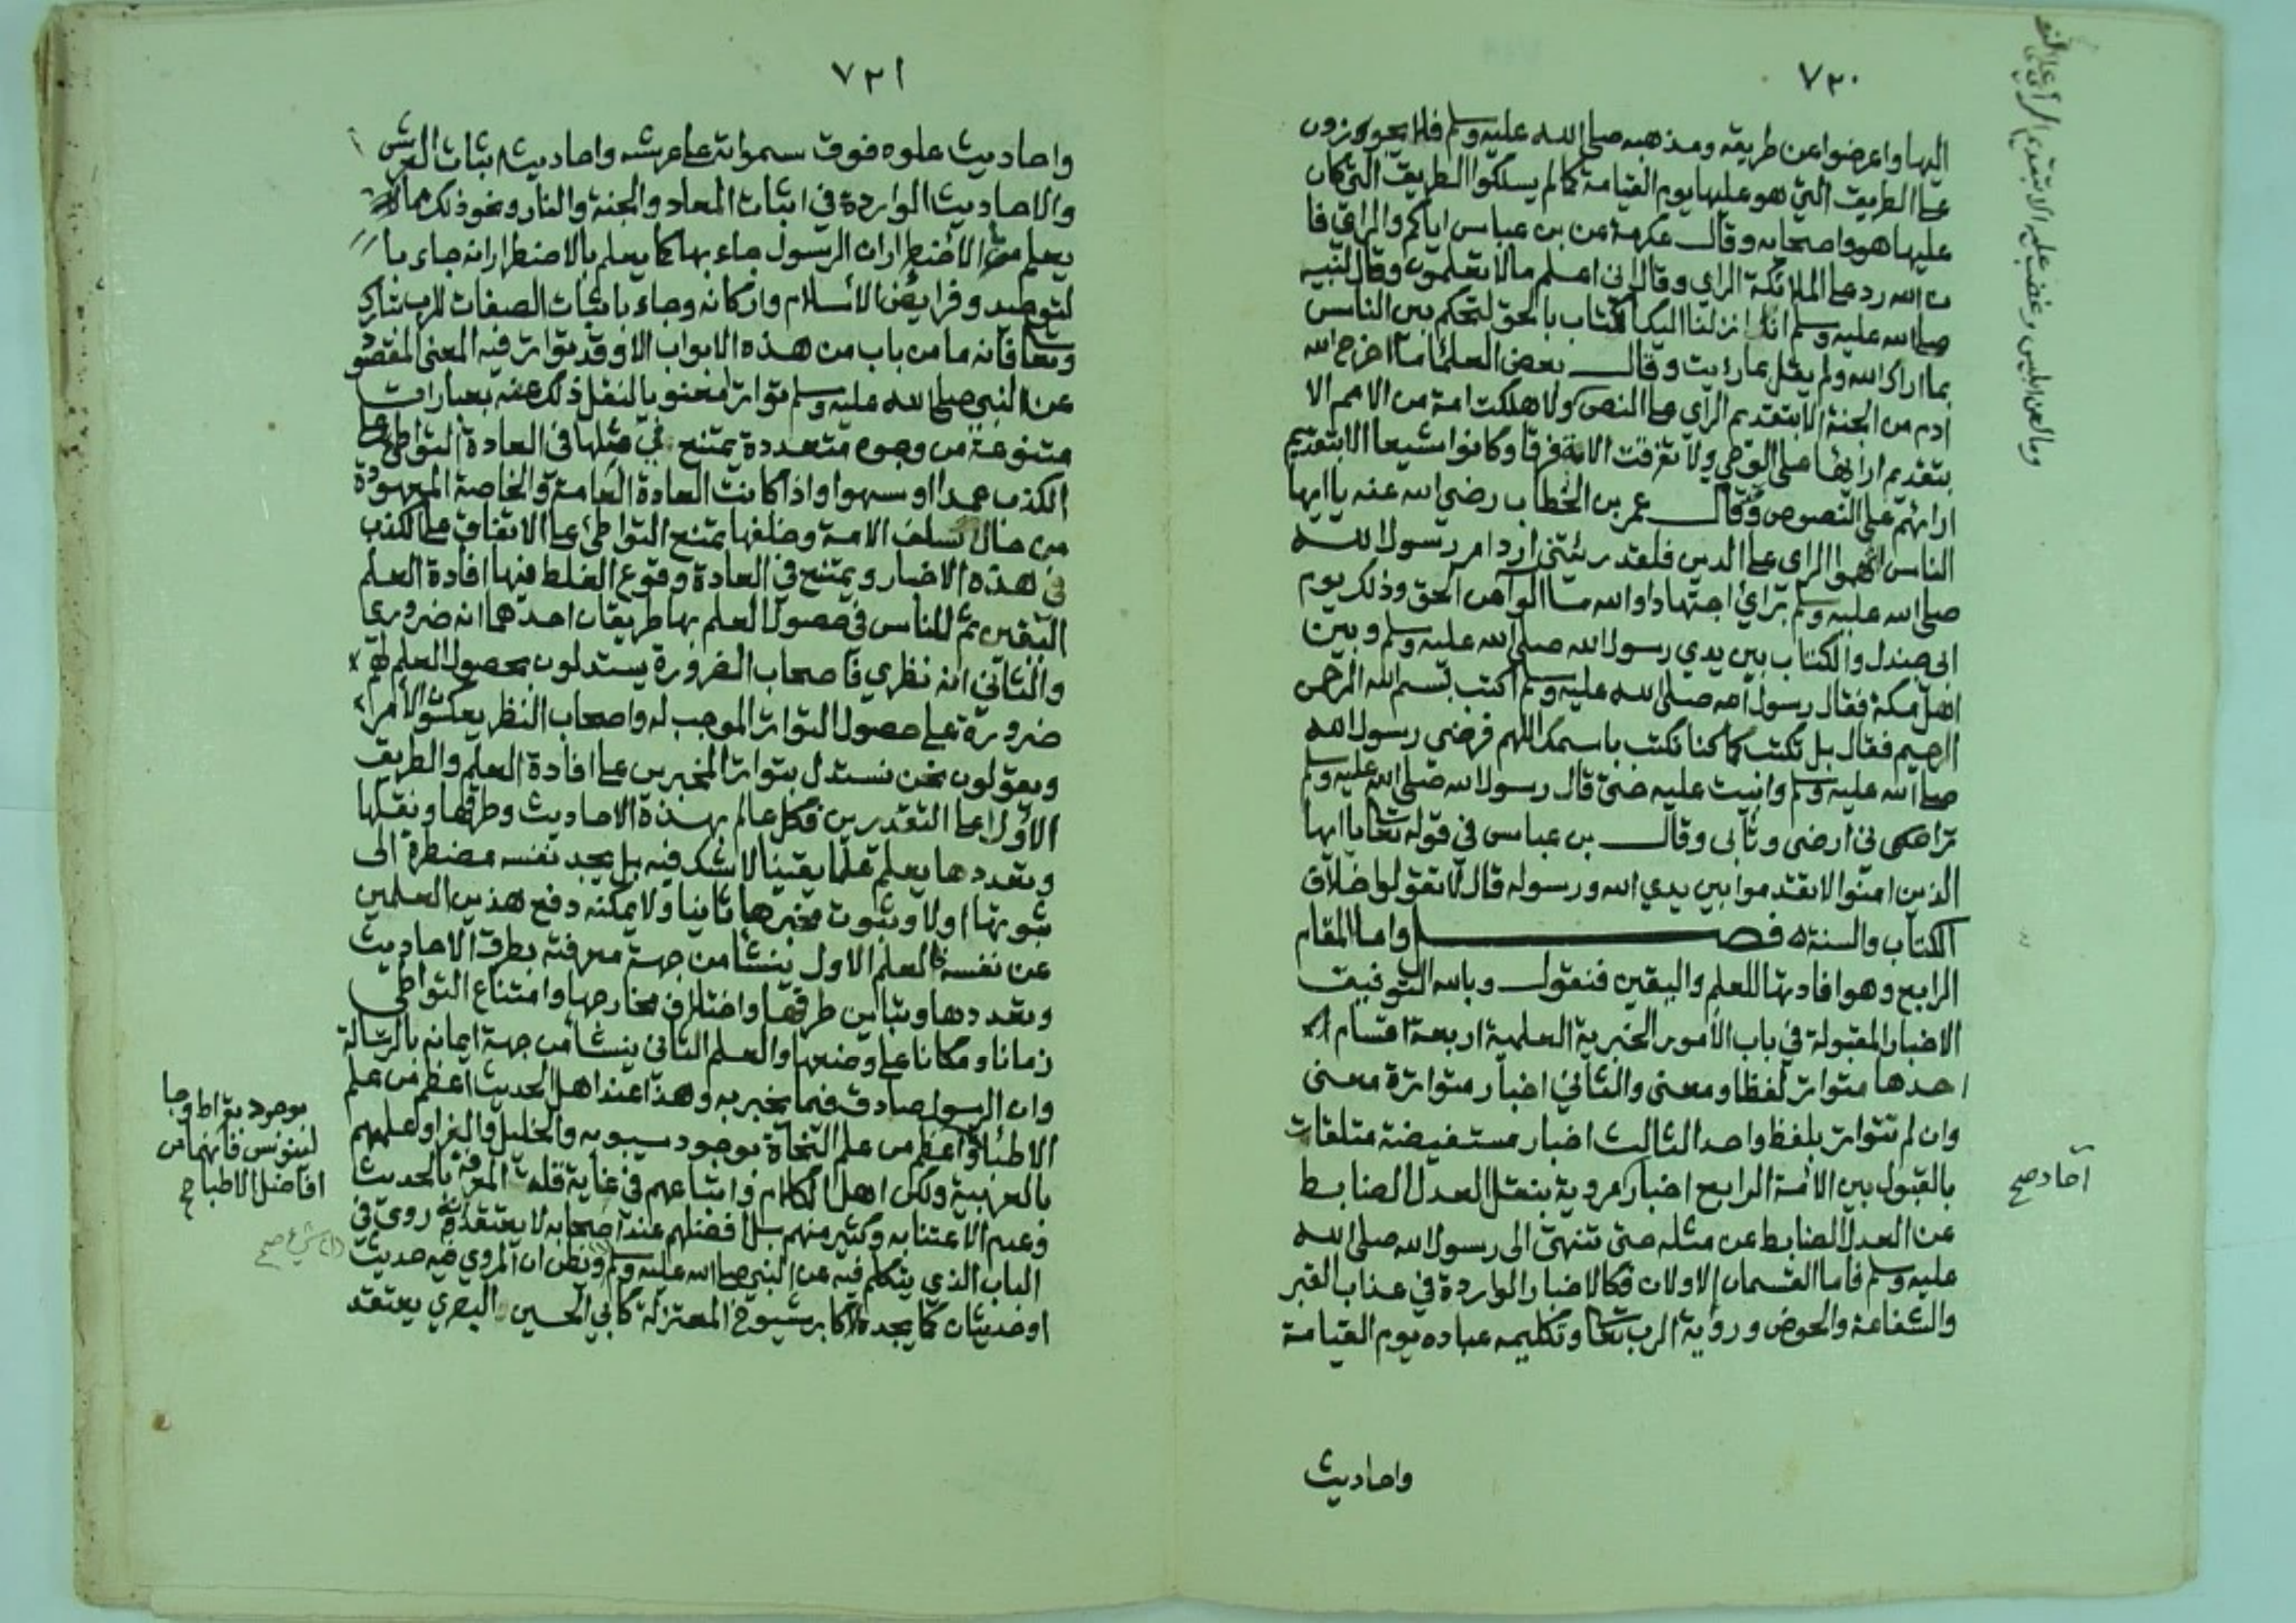 ٧٣٠
اليها واعرضوا عن طريقه ومذهبه صلى الله عليه وسلم فلا يجوزون
على الطريق التي هو عليها يوم القيامة كما لم يسلكوا الطريق التي كان
عليها هو واصحابه وقال عكرمة عن بن عباس اياكم والراي فا
ن الله رد على الملائكة الراي وقال اني اعلم ما لا تعلمون وقال لنبيه
صلى الله عليه وسلم انا انزلنا اليك الكتاب بالحق لتحكم بين الناس
بما اراك الله ولم يقل بما رايت وقال بعض العلما ما اخرج الله
ادم من الجنة الا بتقديم الراي على النص ولا هلكت امة من الامم الا
بتقديم ارائها على الوحي ولا تفرقت الامة فرقا وكانوا شيعا الا بتقديم
ارائهم على النصوص وقال عمر بن الخطاب رضي الله عنه يا ايها
الناس اتهموا الراي على الدين فلقد رئيتني ارد امر رسول الله
صلى الله عليه وسلم برائي اجتهادا والله ما الوا من الحق وذلك يوم
ابي جندل والكتاب بين يدي رسول الله صلى الله عليه وسلم وبين
اهل مكة فقال رسول الله صلى الله عليه وسلم اكتب بسم الله الرحمن
الرحيم فقال بل تكتب كما كنا نكتب باسمك اللهم فرضي رسول الله
صلى الله عليه وسلم وابيت عليه حتى قال رسول الله صلى الله عليه وسلم
تراهكى ني ارضى وتأبى وقال بن عباس في قوله تعالى يا ايها
الذين امنوا لا تقدموا بين يدي الله ورسوله قال لا تقولوا خلاف
الكتاب والسنة ه فصل واما المقام
الرابع وهو افادتها للعلم واليقين فنقول وبالله التوفيق
الاخبار المقبولة في باب الأمور الخبرية العلمية اربعة اقسام ا
حدها متواتر لفظا ومعنى والثاني اخبار متواترة معنى
وان لم تتواتر بلفظ واحد الثالث اخبار مستفيضة متلقات
بالقبول بين الأمة الرابع اخبار مروية بنقل العدل الضابط
عن العدل الضابط عن مثله حتى تنتهى الى رسول الله صلى الله
عليه وسلم فاما القسمان الاولان فكالاخبار الواردة في عذاب القبر
والشفاعة والحوض ورؤية الرب تعالى وتكليمه عباده يوم القيامة
واحاديث
وما لعن ابليس وغضب عليه الا بتقديم الرأي على النص
آحاد صح
٧٣١
واحاديث علوه فوق سمواته على عرشه واحاديث اثبات العرش
والاحاديث الواردة في اثبات المعاد والجنة والنار ونحو ذلك مما
يعلم من الأضطرار ان الرسول جاء بها كما يعلم بالاضطرار انه جاء با
لتوحيد وفرايض الاسلام واركانه وجاء باثبات الصفات للرب تبارك
وتعالى فانه ما من باب من هذه الابواب الا وقد تواتر فيه المعنى المقصود
عن النبي صلى الله عليه وسلم تواترا معنويا لنقل ذلك عنه بعبارات
متنوعة من وجوه متعددة يمتنع في مثلها في العادة التواطئ على
الكذب عمدا او سهوا واذا كانت العادة العامة والخاصة المعهودة
من حال سلف الامة وخلفها تمنع التواطئ على الاتفاق على الكذب
في هذه الاخبار ويمتنع في العادة وقوع الغلط فيها افادة العلم
اليقين ثم للناس في حصول العلم بها طريقان احدهما انه ضروري
والثاني انه نظري فاصحاب الضرورة يستدلون بحصول العلم لهم
ضرورة على حصول التواتر الموجب له واصحاب النظر يعكسون الأمر
ويقولون نحن نستدل بتواتر المخبرين على افادة العلم والطريق
الأول اعلى التقديرين فكل عالم بهذه الاحاديث وطرقها ونقلها
وتعددها يعلم علما يقينا لا شك فيه بل يجد نفسه مضطرة الى
ثبوتها اولا وثبوت مخبرها ثانيا ولا يمكنه دفع هذين العلمين
عن نفسه العلم الاول ينشا من جهة معرفته بطرق الاحاديث
وتعددها وتباين طرقها واختلاف مخارجها وامتناع التواطي
زمانا ومكانا على وضعها والعلم الثاني ينشا من جهة ايمانه بالرسالة
وان الرسول صادق فيما يخبر به وهذا عند اهل الحديث اعظم من علم
الاطباء واعظم من علم النحاة بوجود سيبويه والخليل والفرا وعلمهم
بالعربية ولكن اهل الكلام واتباعهم في غاية قلة المعرفة بالحديث
وعدم الاعتنا به وكثير منهم بل افضلهم عند اصحابه لا يعتقد انه روي في
الباب الذي يتكلم فيه عن النبي صلى الله عليه وسلم ويظن ان المروي فيه حديث
او حديثان كما يجده لاكابر شيوخ المعتزلة كابي الحسين البصري يعتقد
بوجود بقراط وجا
لينوس فانهما من
افاضل الاطبا صح